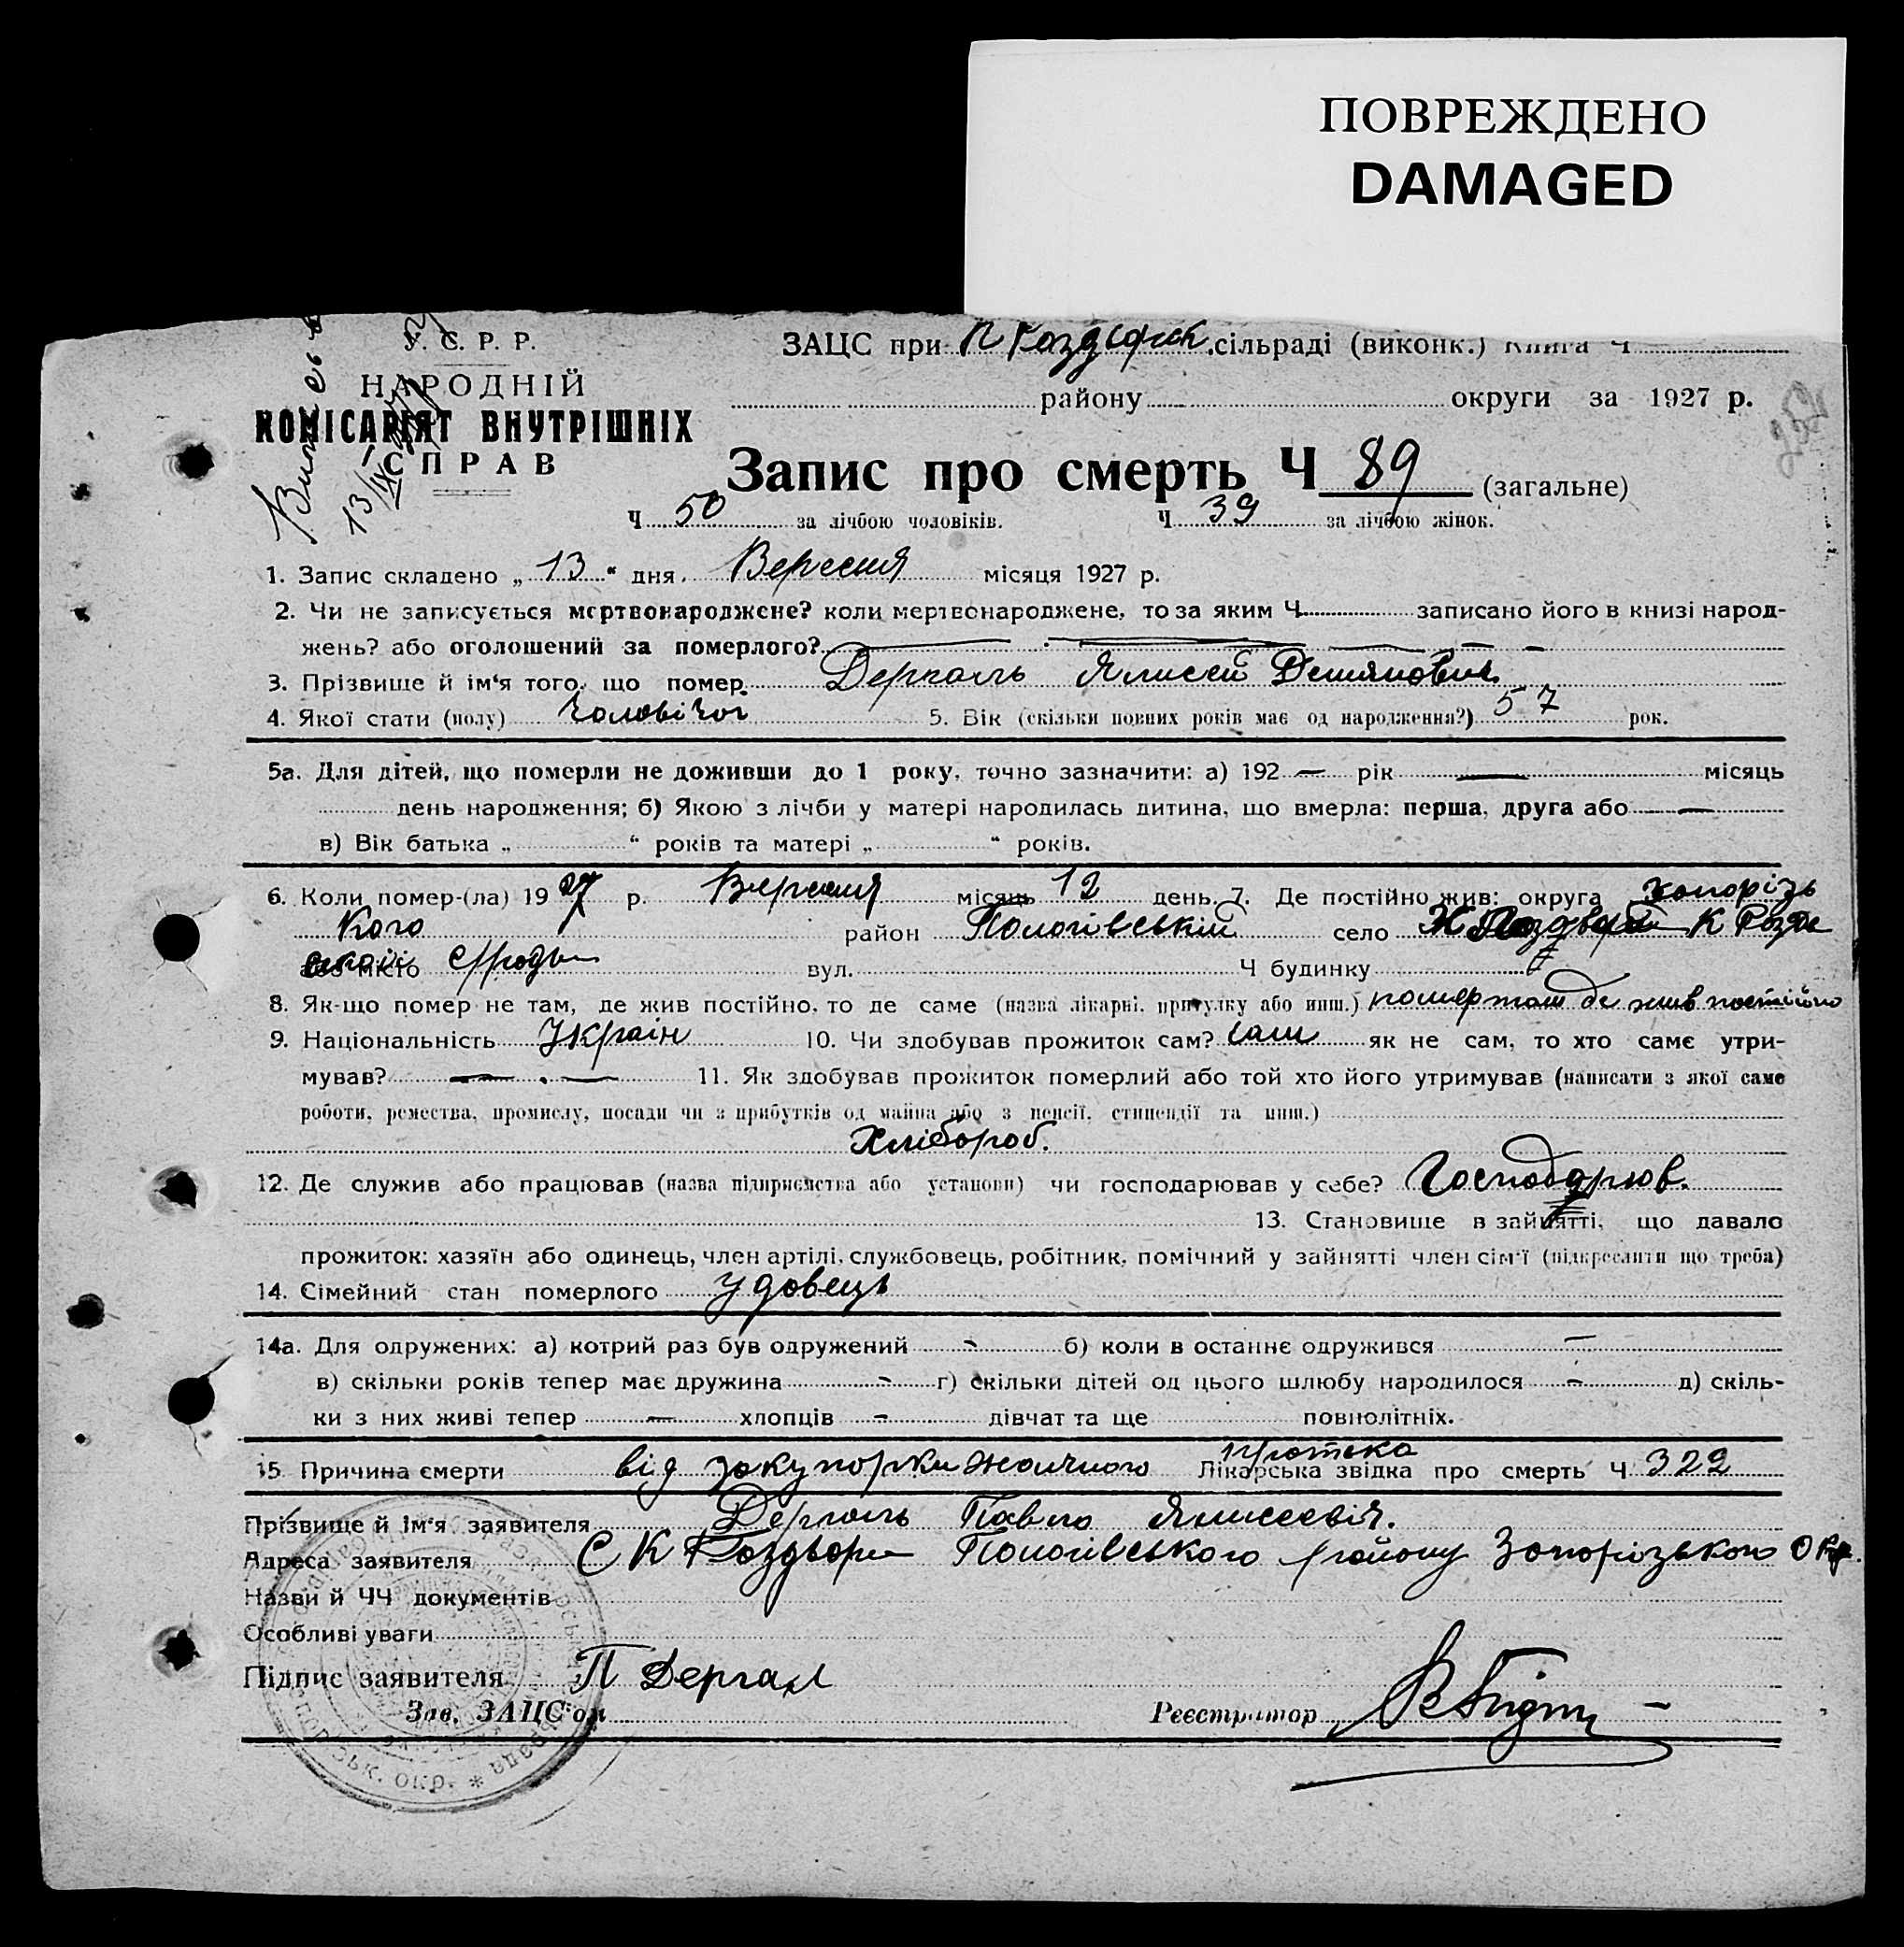 ПОВРЕЖДЕНО
DAMAGED
У. С. Р. Р.
НАРОДНІЙ
КОМІСАРІЯТ ВНУТРІШНІХ
СПРАВ
13/IX
ЗАЦС при сільраді (виконк.) Книга Ч
району округи за 1927 р.
Запис про смерть Ч 89 (загальне)
Ч 50 за лічбою чоловіків. Ч 39 за лічбою жінок.
1. Запис складено „ 13 “ дня Вересня місяця 1927 р.
2. Чи не записується мертвонароджене? коли мертвонароджене, то за яким Ч записано його в книзі народ-
жень? або оголошений за померлого?
3. Прізвище й ім‘я того, що помер Дергаль Ялисей Демянович
4. Якої стати (полу) Чоловічог 5. Вік (скільки повних років має од народження?) 57 рок.
5а. Для дітей, що померли не доживши до 1 року, точно зазначити: а) 192 — рік — місяць
день народження; б) Якою з лічби у матері народилась дитина, що вмерла: перша, друга або —
в) Вік батька „ “ років та матері „ “ років.
6. Коли помер-(ла) 1927 р. Вересня місяць 12 день. 7. Де постійно жив: округа Запорізь
кого район Пологівській село К Розд
або місто вул. Ч будинку
8. Як-що помер не там, де жив постійно, то де саме (назва лікарні, притулку або инш.) помер там де жив постійно
9. Національність Україн 10. Чи здобував прожиток сам? сам як не сам, то хто саме утри-
мував? — . — 11. Як здобував прожиток померлий або той хто його утримував (написати з якої саме
роботи, ремества, промислу, посади чи з прибутків од майна або з пенсії, стипендії та инш.)
Хлібороб.
12. Де служив або працював (назва підприємства або установи) чи господарював у себе? Господарюв.
13. Становище в зайнятті, що давало
прожиток: хазяїн або одинець, член артілі, службовець, робітник, помічний у зайнятті член сім‘ї (підкреслити що треба)
14. Сімейний стан померлого Удовець
14а. Для одружених: а) котрий раз був одружений - б) коли в останнє одружився —
в) скільки років тепер має дружина - г) скільки дітей од цього шлюбу народилося - д) скіль-
ки з них живі тепер — хлопців - дівчат та ще повнолітніх.
15. Причина смерти від закупорки жолчного протока Лікарська звідка про смерть Ч 322
Прізвище й ім‘я заявителя Дергаль Павло Ялисеевіч.
Адреса заявителя С К Роздори Пологівського району Запорізького Окр.
Назви й ЧЧ документів
Особливі уваги
Підпис заявителя П Дергал
Зав. ЗАЦС‘ом Реєстратор